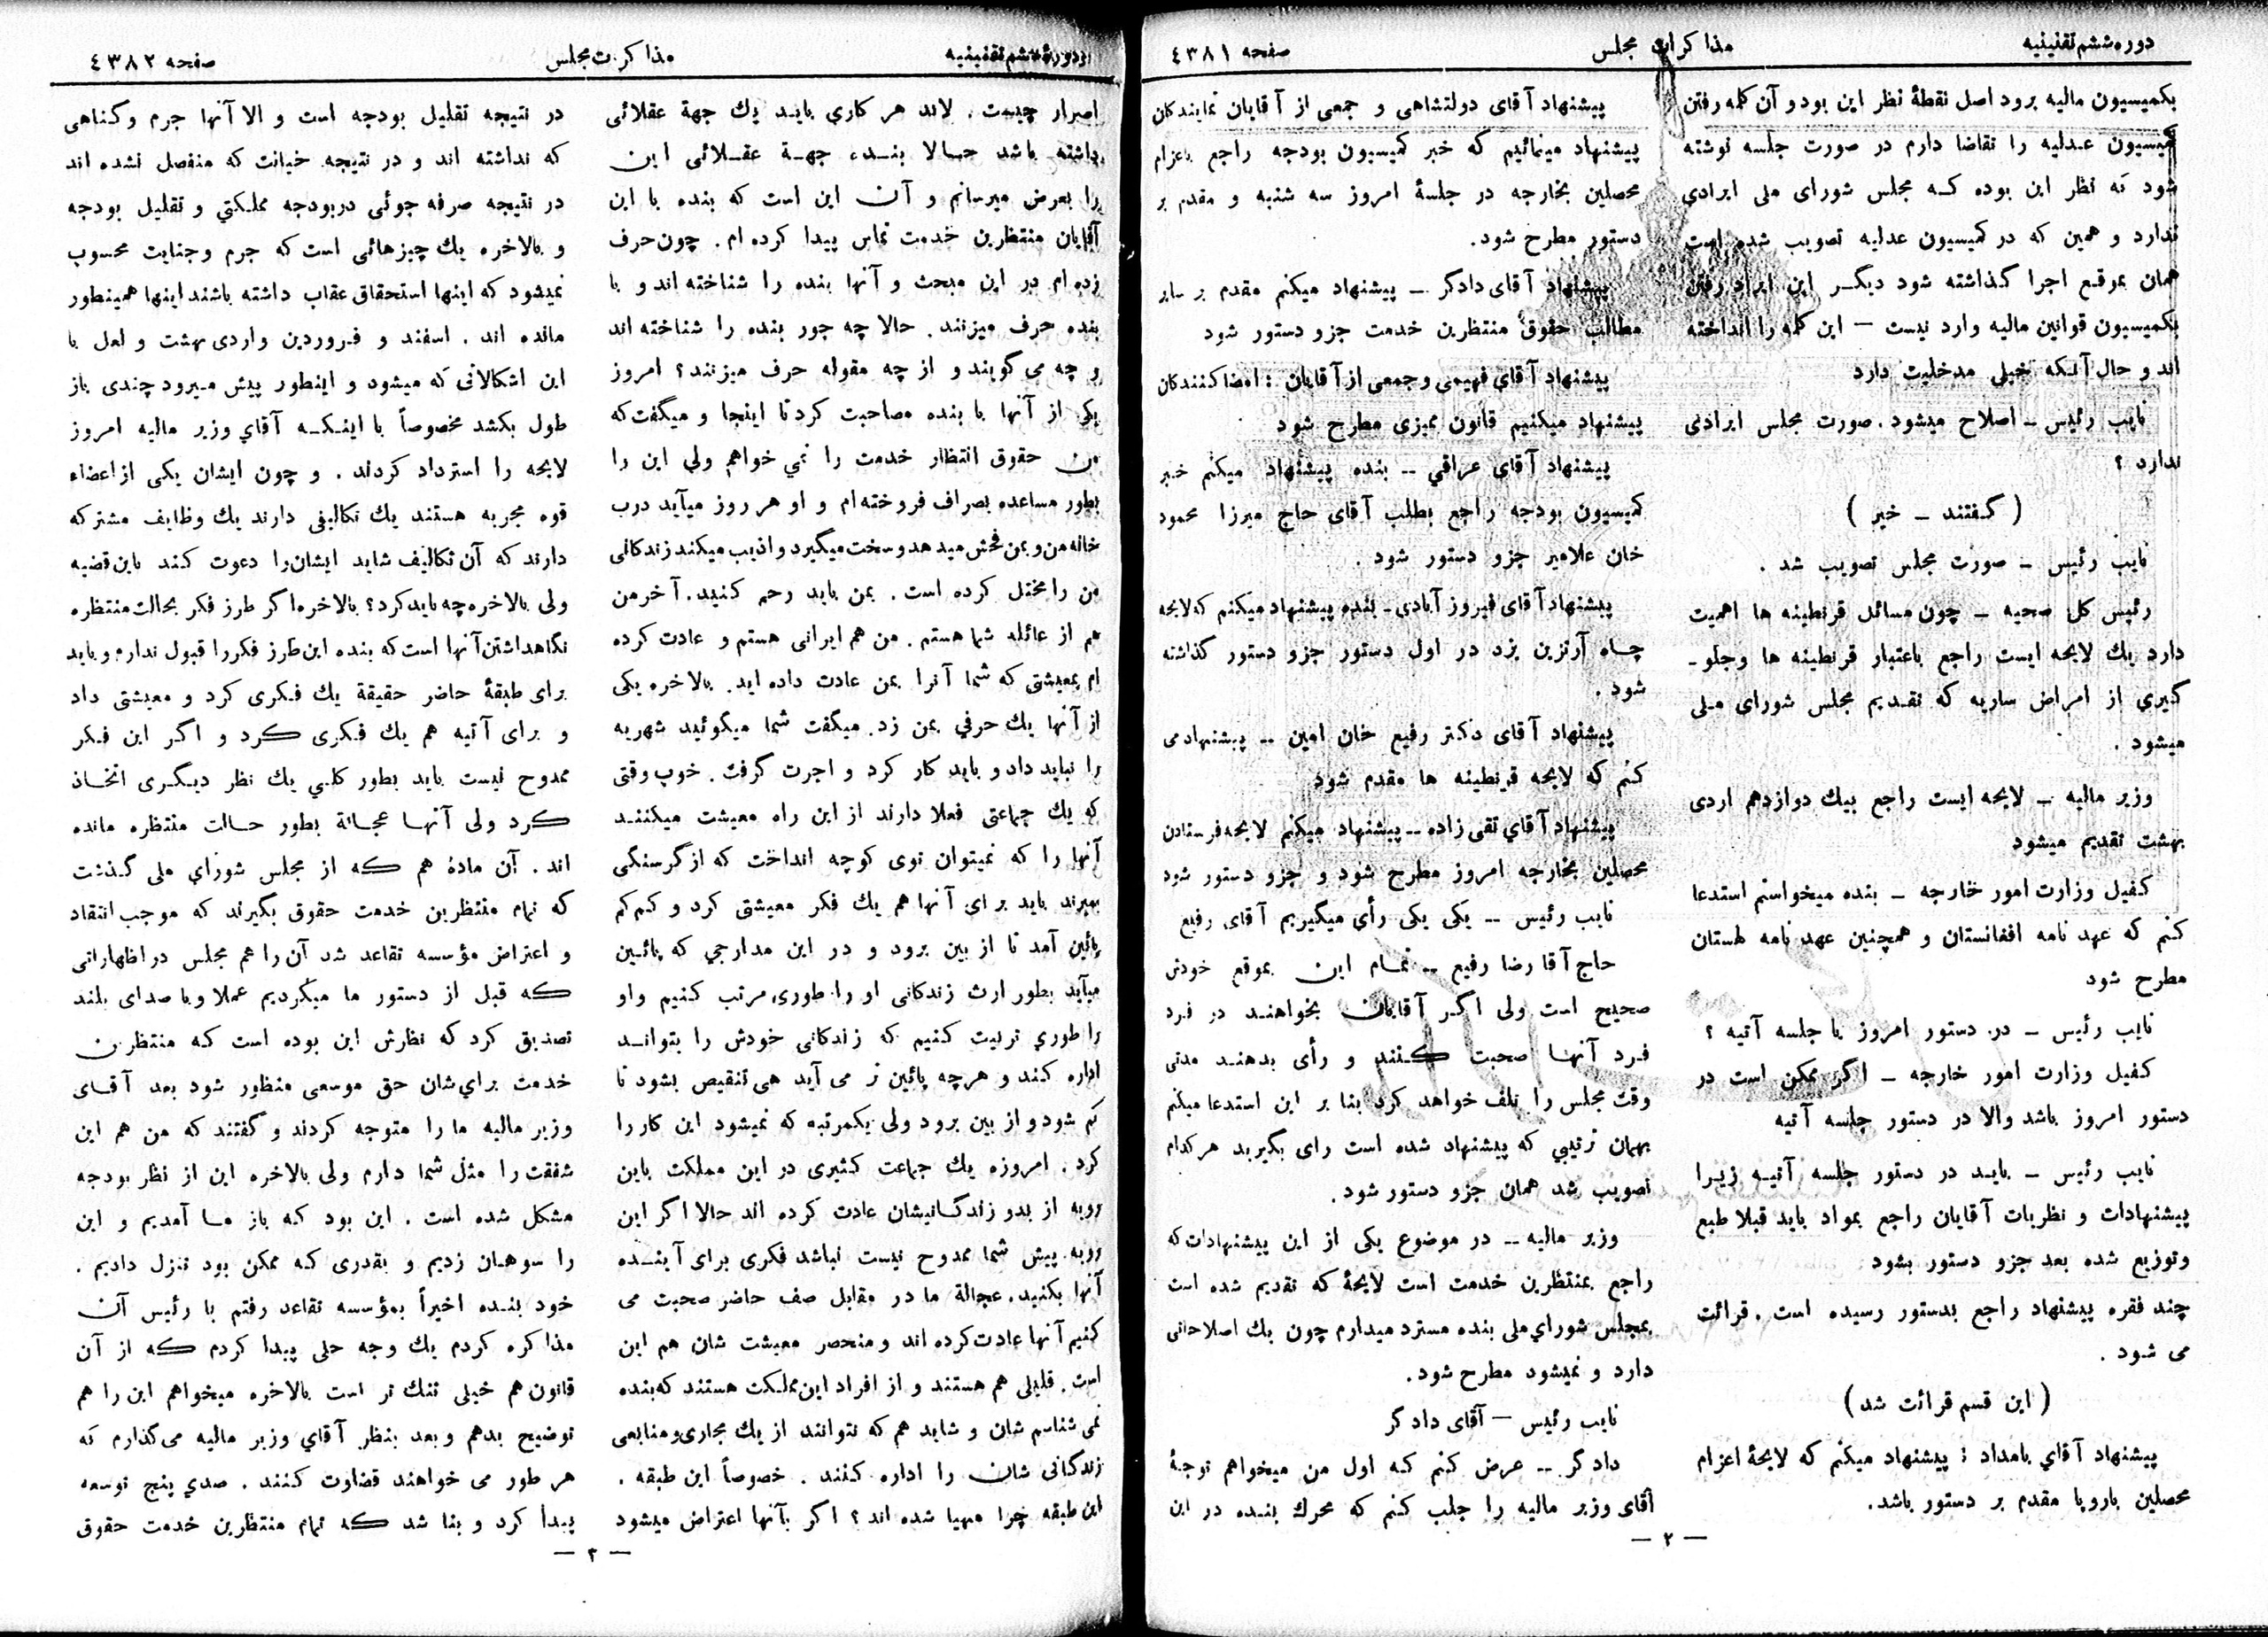 دوره ششم تقنینیه
مذاکرات مجلس
صفحه ٤٣٨١
بکمیسیون مالیه برود اصل نقطهٔ نظر این بود و آن کله رفتن
کمیسیون عدلیه را تقاضا دارم در صورت جلسه نوشته
شود که نظر این بوده که مجلس شورای ملی ایرادی
ندارد و همین که در کمیسیون عدلیه تصویب شده است
همان بموقع اجرا گذاشته شود دیگر این ایراد رفتن
بکمیسیون قوانین مالیه وارد نیست — این کله را انداخته
اند و حال آنکه خیلی مدخلیت دارد
نایب رئیس ـ اصلاح میشود. صورت مجلس ایرادی
ندارد ؟
( گفتند ـ خیر )
نایب رئیس ـ صورت مجلس تصویب شد .
رئیس کل صحیه ـ چون مسائل قرنطینه ها اهمیت
دارد یك لایحه ایست راجع باعتبار قرنطینه ها و جلو-
گیري از امراض ساریه که تقدیم مجلس شورای ملی
میشود .
وزیر مالیه ـ لایحه ایست راجع بیك دوازدهم اردی
بهشت تقدیم میشود
کفیل وزارت امور خارجه ـ بنده میخواستم استدعا
کنم که عهد نامه افغانستان و همچنین عهد نامه لهستان
مطرح شود
نایب رئیس ـ در دستور امروز یا جلسه آتیه ؟
کفیل وزارت امور خارجه ـ اگر ممکن است در
دستور امروز باشد والا در دستور جلسه آتیه
نایب رئیس ـ باید در دستور جلسه آتیه زیرا
پیشنهادات و نظریات آقایان راجع بمواد باید قبلا طبع
وتوزیع شده بعد جزو دستور بشود
چند فقره پیشنهاد راجع بدستور رسیده است . قرائت
می شود .
( این قسم قرائت شد )
پیشنهاد آقاي بامداد : پیشنهاد میکنم که لایحهٔ اعزام
محصلین باروپا مقدم بر دستور باشد.
پیشنهاد آقای دولتشاهی و جمعی از آقایان نمایندکان
پیشنهاد مینمائیم که خبر کمیسیون بودجه راجع باعزام
محصلین بخارجه در جلسهٔ امروز سه شنبه و مقدم بر
دستور مطرح شود.
پیشنهاد آقای دادگر ـ پیشنهاد میکنم مقدم بر سایر
مطالب حقوق منتظرین خدمت جزو دستور شود
پیشنهاد آقاي فهیمی و جمعی از آقایان : امضا کنندکان
پیشنهاد میکنیم قانون ممیزی مطرح شود
پیشنهاد آقای عراقي -- بنده پیشنهاد میکنم خبر
کمیسیون بودجه راجع بطلب آقای حاج میرزا محمود
خان علامیر جزو دستور شود .
پیشنهاد آقای فیروز آبادی- بنده پیشنهاد میکنم که لایحه
چاه آرتزین یزد در اول دستور جزو دستور گذاشته
شود .
پیشنهاد آقای دکتر رفیع خان امین -- پیشنهاد می
کنم که لایحه قرنطینه ها مقدم شود
پیشنهاد آقاي تقی زاده -- پیشنهاد میکنم لایحه فرستادن
محصلین بخارجه امروز مطرح شود و جزو دستور شود
نایب رئیس -- یکی یکی رأی میگیریم آقای رفیع
حاج آقا رضا رفیع -- تمام این بموقع خودش
صحیح است ولی اگر آقایان بخواهند در فرد
فرد آنها صحبت کنند و رأی بدهند مدتی
وقت مجلس را تلف خواهد کرد بنا بر این استدعا میکنم
بهمان ترتیبي که پیشنهاد شده است رای بگیرید هر کدام
تصویب شد همان جزو دستور شود.
وزیر مالیه -- در موضوع یکی از این پیشنهادات که
راجع بمنتظرین خدمت است لایحهٔ که تقدیم شده است
بمجلس شورای ملی بنده مسترد میدارم چون یك اصلاحاتی
دارد و نمیشود مطرح شود.
نایب رئیس — آقای دادگر
دادگر -- عرض کنم که اول من میخواهم توجهٔ
آقای وزیر مالیه را جلب کنم که محرك بنده در این
— ٢ —
دوره ششم تقنینیه
مذاکرات مجلس
صفحه ٤٣٨٢
اصرار چیست . لابد هر کاري باید یك جهة عقلائی
داشته باشد حالا بنده جهة عقلائی این
را بعرض میرسانم و آن این است که بنده با این
آقایان منتظرین خدمت تماس پیدا کرده ام. چون حرف
زده ام در این مبحث و آنها بنده را شناخته اند و با
بنده حرف میزنند. حالا چه جور بنده را شناخته اند
و چه می گویند و از چه مقوله حرف میزنند؟ امروز
یکی از آنها با بنده مصاحبت کرد تا اینجا و میگفت که
من حقوق انتظار خدمت را نمي خواهم ولي این را
بطور مساعده بصراف فروخته ام و او هر روز میآید درب
خانه من و بمن فحش میدهد و سخت میگیرد و اذیب میکند زندکانی
من را مختل کرده است. بمن باید رحم کنید. آخر من
هم از عائله شما هستم. من هم ایرانی هستم و عادت کرده
ام بمعیشتی که شما آنرا بمن عادت داده اید. بالاخره یکی
از آنها یك حرفي بمن زد. میگفت شما میگوئید شهریه
را نباید داد و باید کار کرد و اجرت گرفت. خوب وقتی
که یك جماعتی فعلا دارند از این راه معیشت میکنند
آنها را که نمیتوان توی کوچه انداخت که از گرسنگی
بمیرند باید برای آنها هم یك فکر معیشتی کرد و کم کم
پائین آمد تا از بین برود و در این مدارجي که پائین
میآید بطور ارث زندکانی او را طوری مرتب کنیم و او
را طوري تربیت کنیم که زندکانی خودش را بتواند
اداره کند و هر چه پائین تر می آید هی تنقیص بشود تا
کم شود و از بین برود ولی یکمرتبه که نمیشود این کار را
کرد. امروزه یك جماعت کثیری در این مملکت باین
رویه از بدو زندگانیشان عادت کرده اند حالا اگر این
رویه پیش شما ممدوح نیست نباشد فکری برای آینده
آنها بکنید. عجالة ما در مقابل صف حاضر صحبت می
کنیم آنها عادت کرده اند و منحصر معیشت شان هم این
است. قلیلی هم هستند و از افراد این مملکت هستند که بنده
نمی شناسم شان و شاید هم که نتوانند از یك مجاری و منابعی
زندگانی شان را اداره کنند . خصوصاً این طبقه .
این طبقه چرا مهیا شده اند ؟ اگر بآنها اعتراض میشود
در نتیجه تقلیل بودجه است و الا آنها جرم و گناهی
که نداشته اند و در نتیجه خیانت که منفصل نشده اند
در نتیجه صرفه جوئی در بودجه مملکتي و تقلیل بودجه
و بالاخره یك چیزهائی است که جرم و جنایت محسوب
نمیشود که اینها استحقاق عقاب داشته باشند اینها همینطور
مانده اند . اسفند و فروردین و اردی بهشت و لعل با
این اشکالاتی که میشود و اینطور پیش میرود چندی باز
طول بکشد مخصوصاً با اینکه آقاي وزیر مالیه امروز
لایحه را استرداد کردند . و چون ایشان یکی از اعضاء
قوه مجریه هستند یك تکالیفی دارند یك وظایف مشترکه
دارند که آن تکالیف شاید ایشان را دعوت کند باین قضیه
ولی بالاخره چه باید کرد؟ بالاخره اگر طرز فکر بحالت منتظره
نگاهداشتن آنها است که بنده این طرز فکر را قبول ندارم و باید
برای طبقهٔ حاضر حقیقة یك فکری کرد و معیشتی داد
و برای آتیه هم یك فکری کرد و اگر این فکر
ممدوح نیست باید بطور کلي یك نظر دیگری اتخاذ
کرد ولی آنها عجالة بطور حالت منتظره مانده
اند . آن مادهٔ هم که از مجلس شوراي ملی گذشت
که تمام منتظرین خدمت حقوق بگیرند که موجب انتقاد
و اعتراض مؤسسه تقاعد شد آن را هم مجلس در اظهاراتی
که قبل از دستور ما میکردیم عملا و با صدای بلند
تصدیق کرد که نظرش این بوده است که منتظرین
خدمت براي شان حق موسعی منظور شود بعد آقای
وزیر مالیه ما را متوجه کردند و گفتند که من هم این
شفقت را مثل شما دارم ولی بالاخره این از نظر بودجه
مشکل شده است . این بود که باز ما آمدیم و این
را سوهان زدیم و بقدری که ممکن بود تنزل دادیم .
خود بنده اخیراً بمؤسسه تقاعد رفتم با رئیس آن
مذاکره کردم یك وجه حلی پیدا کردم که از آن
قانون هم خیلی تنك تر است بالاخره میخواهم این را هم
توضیح بدهم و بعد بنظر آقاي وزیر مالیه می گذارم که
هر طور می خواهند قضاوت کنند . صدي پنج توسعه
پیدا کرد و بنا شد که تمام منتظرین خدمت حقوق
— ٣ —